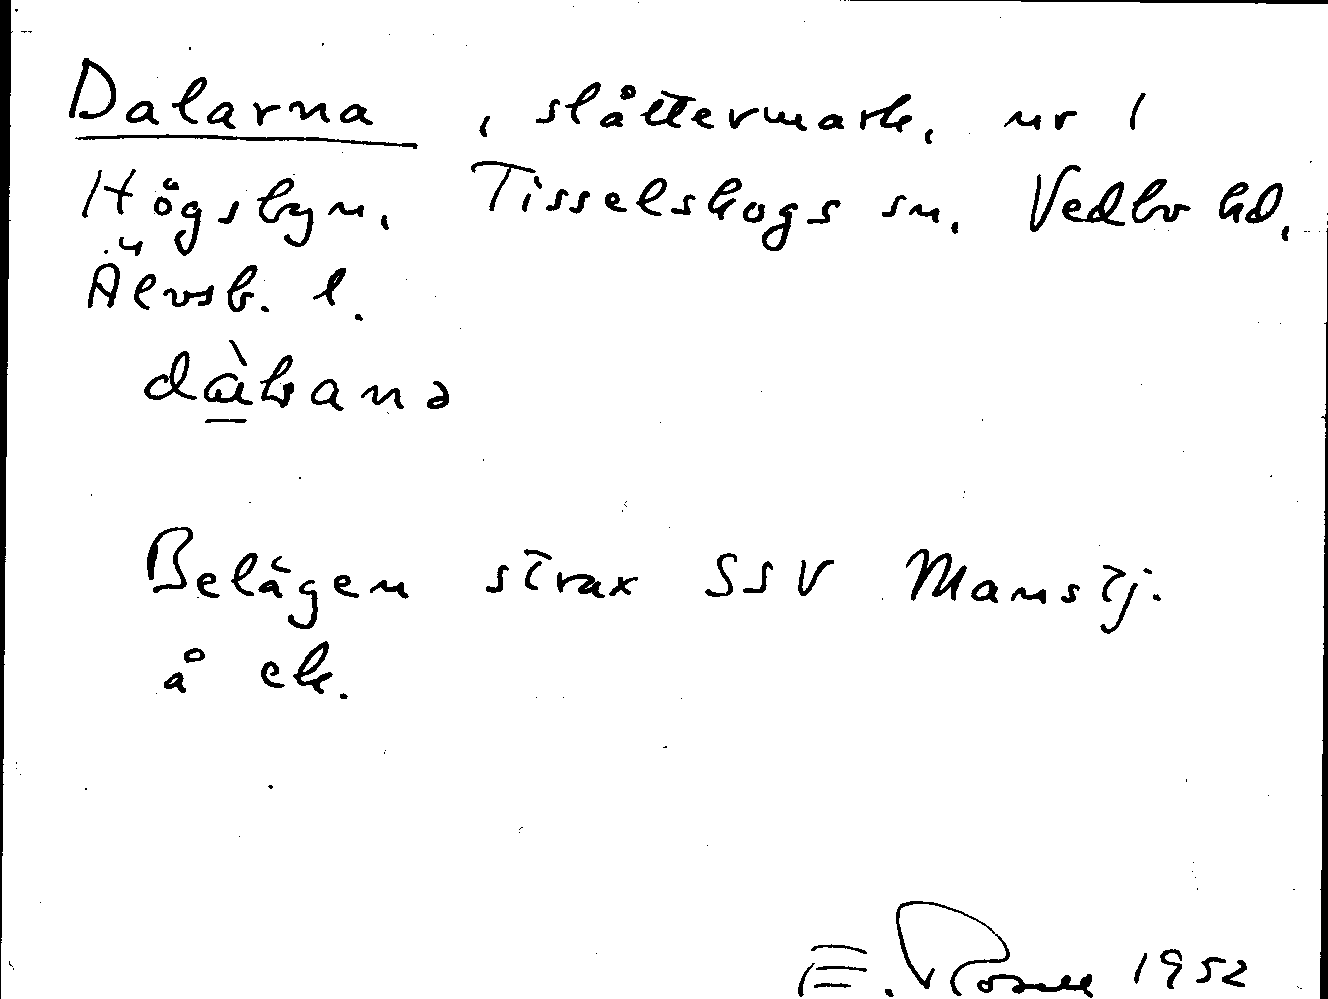 Dalarna, slåttermark, nr 1
Högsbyn, Tisselskogs sn. Vedbo hd,
Älvsb. l.
Belägen strax SSV Manstj.
å ek.
E. Rosell 1952